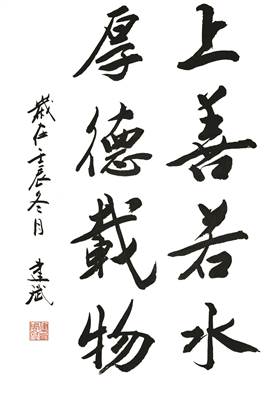 上善若水
厚德載物
歲在壬辰冬月 建斌